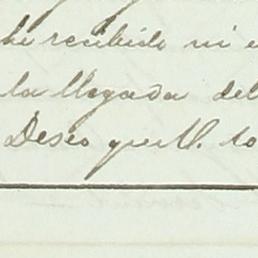 he recibido ni e
la llegada del
Deseo que U. lo